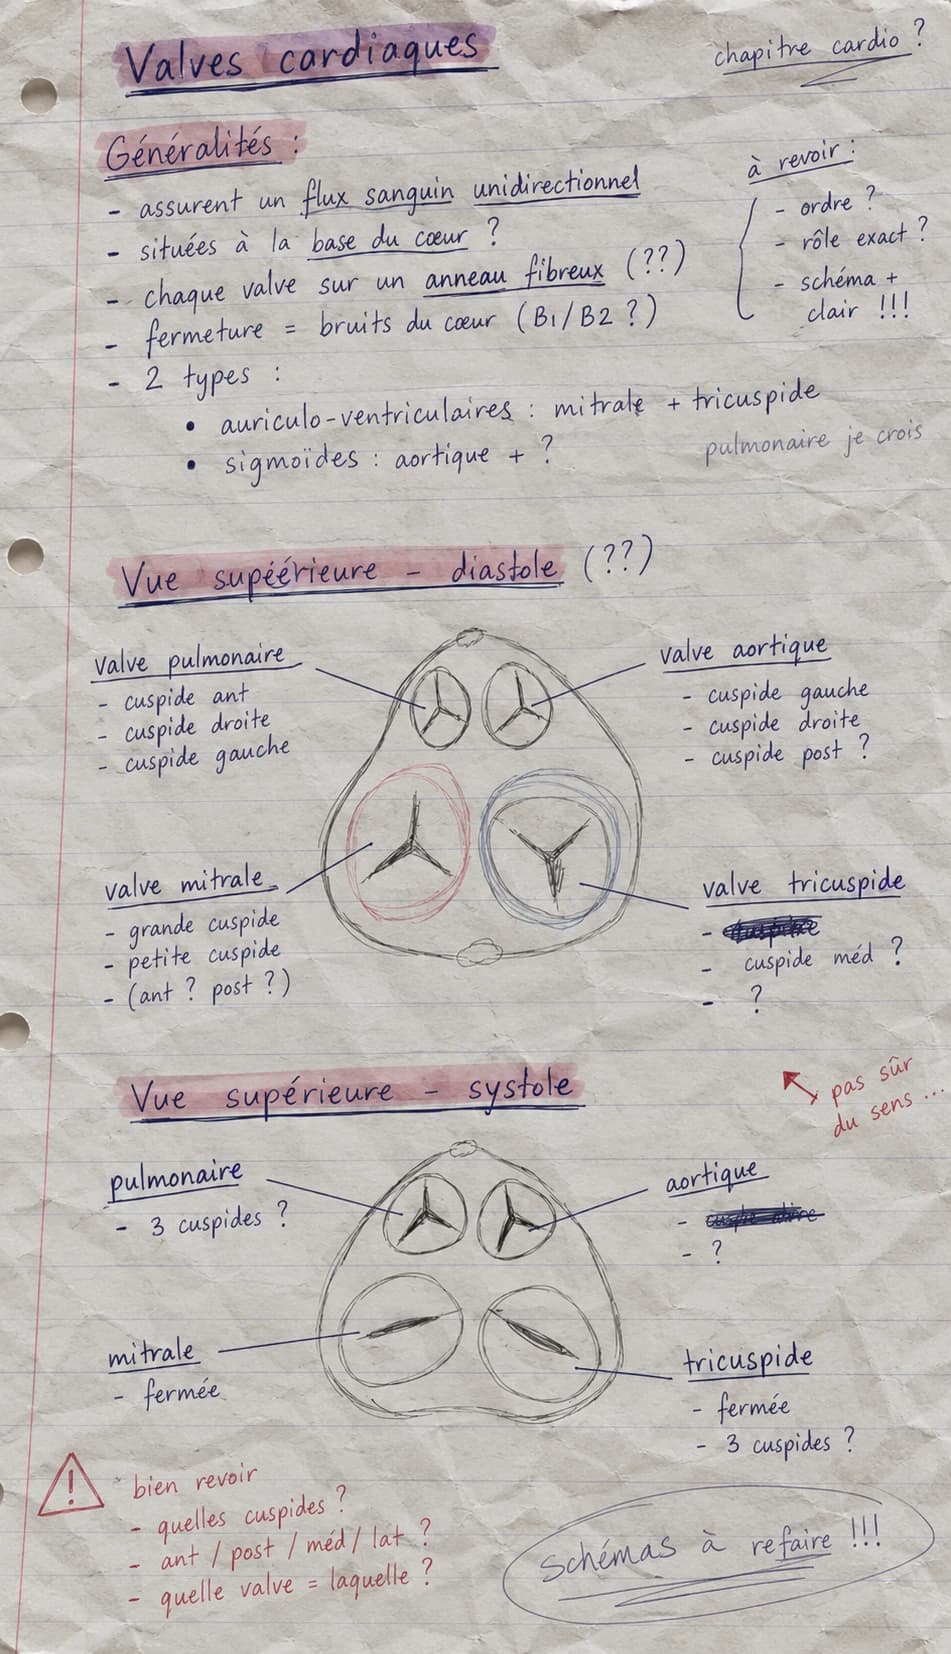 Valves cardiaques
chapitre cardio ?
Généralités :
- assurent un flux sanguin unidirectionnel
- situées à la base du cœur ?
- chaque valve sur un anneau fibreux (??)
- fermeture = bruits du cœur (B1/B2 ?)
- 2 types :
• auriculo-ventriculaires : mitrale + tricuspide
• sigmoïdes : aortique + ?
pulmonaire je crois
à revoir :
- ordre ?
- rôle exact ?
- schéma +
clair !!!
Vue supéérieure - diastole (??)
valve pulmonaire
- cuspide ant
- cuspide droite
- cuspide gauche
valve aortique
- cuspide gauche
- cuspide droite
- cuspide post ?
valve mitrale
- grande cuspide
- petite cuspide
- (ant ? post ?)
valve tricuspide
-
- cuspide méd ?
- ?
Vue supérieure - systole
pas sûr
du sens ...
pulmonaire
- 3 cuspides ?
aortique
-
- ?
mitrale
- fermée
tricuspide
- fermée
- 3 cuspides ?
!
bien revoir
- quelles cuspides ?
- ant / post / méd / lat ?
- quelle valve = laquelle ?
Schémas à refaire !!!